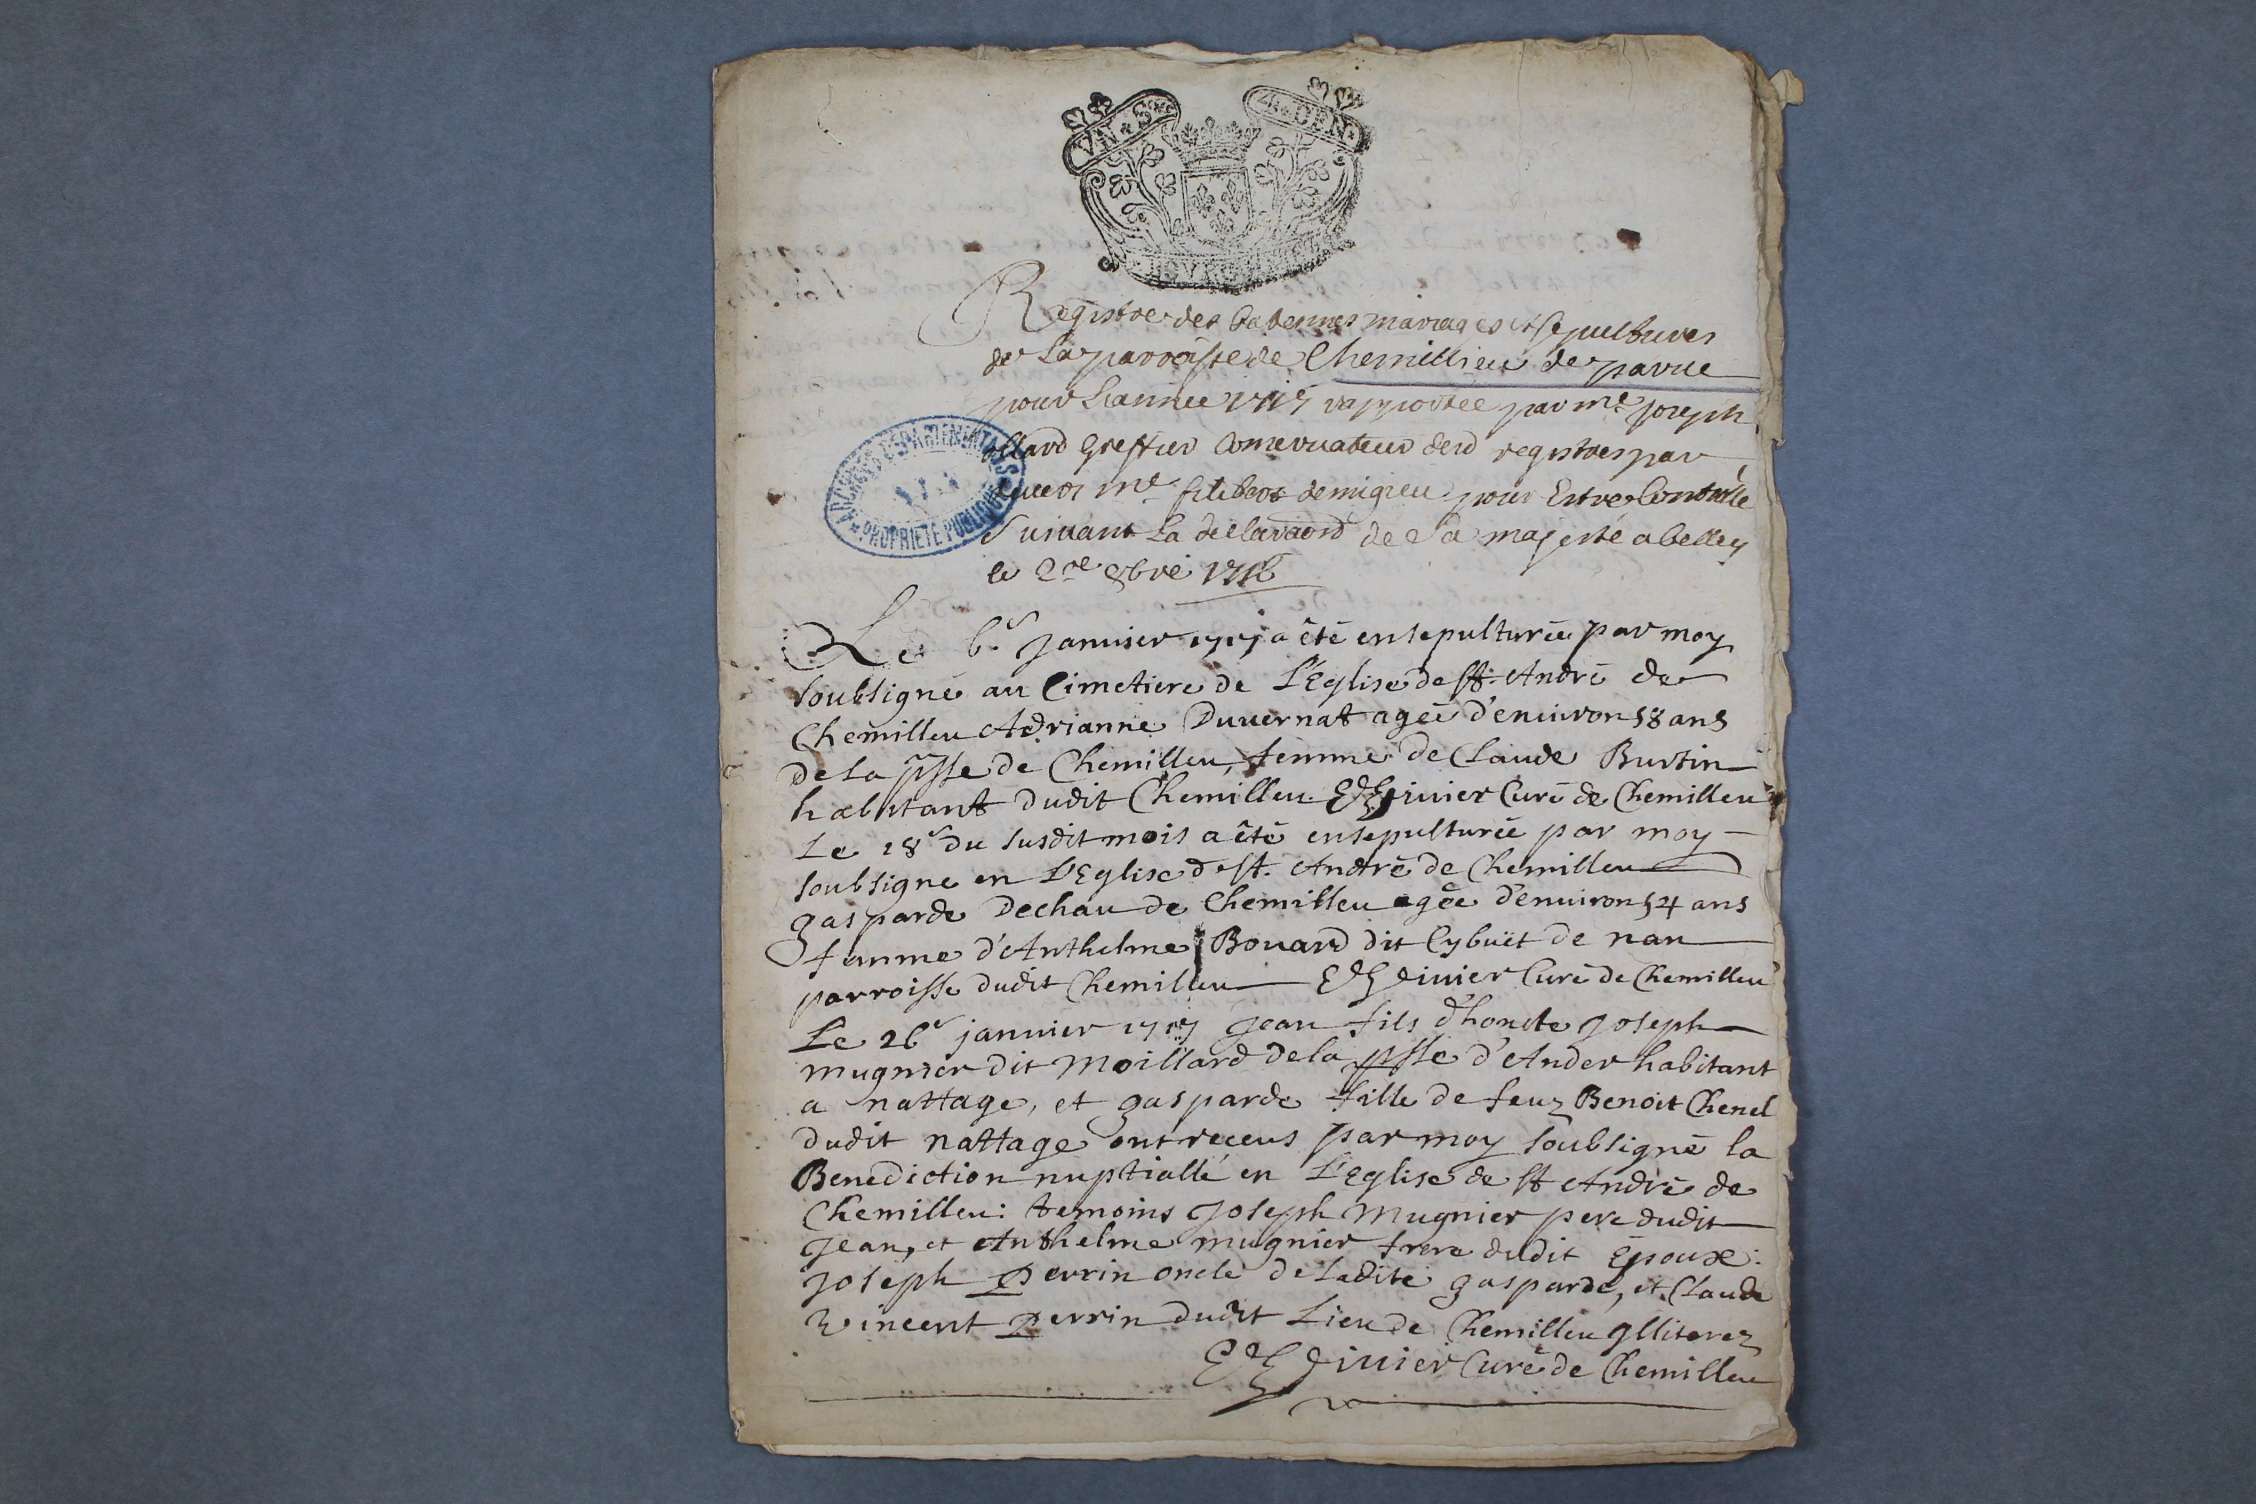 VN * S
4 * DEN
Registre des batesmes mariages et sepultures
de La parroisse de Chemillieu de parue
pour Lannee 1717 rapportee par me joseph
ollard greffier Conservateur desd registres par
me filibert demigieu pour Estre Controlle
Suivant La declaraõn de Sa majesté a belley
le 2me 8bre 1718
ARCHIVES DEPARTEMENTALES
PROPRIETE PUBLIQUE
Le 6e Janvier 1717 a été ensepulturée par moy
soubsigné au Cimetiere de L'Eglise de St. André de
Chemilleu Adrianne Duvernat ageé d'environ 58 ans
De La psse de Chemilleu, femme de Claude Burtin
habitant dudit Chemilleu. Rivier Curé de Chemilleu
Le 18e du susdit mois a été ensepulturée par moy
soubsigne en L'Eglise de St. André de Chemilleu
gasparde Dechau de Chemilleu agée d'environ 54 ans
femme d'Anthelme Bouard dit Cybuët de nan
parroisse dudit Chemilleu Rivier Curé de Chemilleu
Le 26e janvier 1717 Jean fils d'honete Joseph
mugnier dit Moillard de la psse d'Ander habitant
a nattage, et gasparde fille de feuz Benoit Chenel
dudit nattage ont receus par moy soubsigné la
Benediction nuptialle en L'Eglise de St André de
Chemilleu: temoins Joseph Mugnier pere dudit
Jean, et Anthelme mugnier frere dudit Epoux:
Joseph Perrin oncle de Ladite gasparde, et Claude
Vincent Perrin dudit Lieu de Chemilleu Illiterez
Rivier Curé de Chemilleu